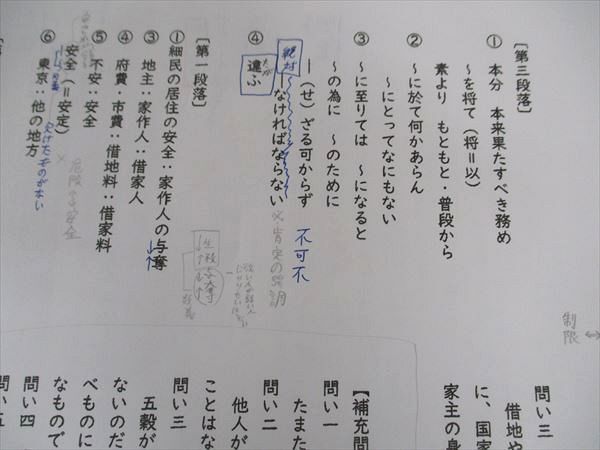 〔第三段落〕
① 本分 本来果たすべき務め
〜を将て（将＝以）
素より もともと・普段から
② 〜に於て何かあらん
〜にとってなにもない
③ 〜に至りては 〜になると
〜の為に 〜のために
―（せ）ざる可からず
不可不
絶対
―なければならない
※肯定の強調
④ 違ふ
たが
〔第一段落〕
① 細民の居住の安全：家作人の与奪
生殺与奪
③ 地主：家作人：借家人
④ 府費・市費：借地料：借家料
⑤ 不安：安全
安全（＝安定）
⑥ 東京：他の地方
欠けたものがない
×危険⇔安全
制限
問い三
借地や
に、国家
家主の身
【補充問
問い一
たまた
問い二
他人が
ことはな
問い三
五穀が
ないのだ
べものに
なもので
問い四
問い五